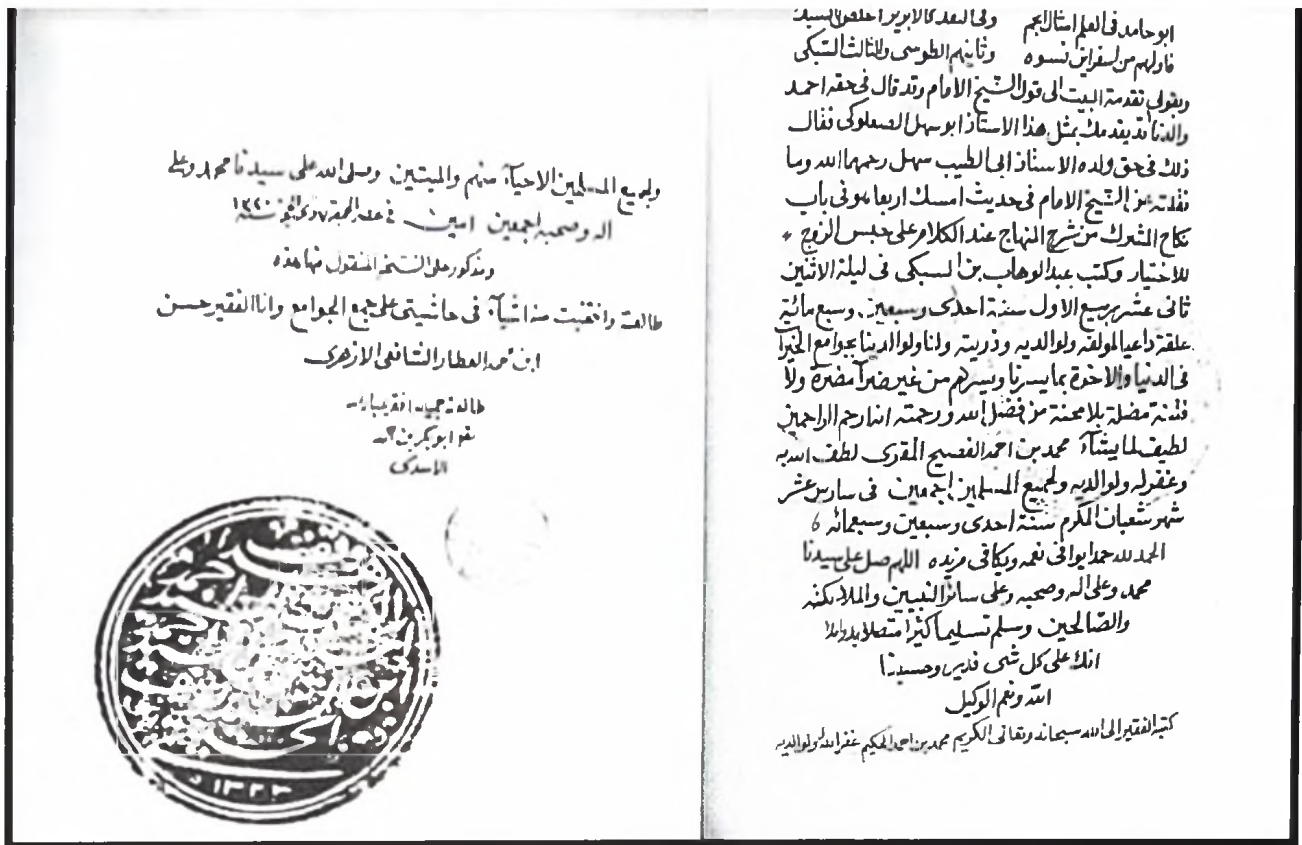 ابو حامد فى العلم امثال انجم وفى النقد كالابريز اخلص بالسبك
فاولهم من اسفراين نسوه وثانيهم الطوسى والثالث السبكى
وبقولى تقدمة البيت الى قول الشيخ الامام وقد قال فى حقه احمد
والدنا قد يقدمك بمثل هذا الاستاذ ابو سهل الصعلوكى فقال
ذلك فى حق ولده الاستاذ ابى الطيب سهل رحمهما الله وما
نقلته عن الشيخ الامام فى حديث امسك اربعا هو فى باب
نكاح المشرك من شرح المنهاج عند الكلام على حبس الزوج
للاختيار وكتب عبد الوهاب بن السبكى فى ليلة الاثنين
ثانى عشر ربيع الاول سنة احدى وسبعين وسبع مائية
علقة داعيا لمولفه ولوالديه وذريته وانا ولوالدينا بجوامع الخيرا
فى الدنيا والاخرة بما يسرنا ويسرهم من غير ضرآ مضرة ولا
فتنة مضلة بلا محنة من فضل الله ورحمته انه ارحم الراحمين
لطيف لما يشآء محمد بن احمد الفصيح المقرى لطف الله به
وغفر له ولوالديه ولجميع المسلمين اجمعين فى سادس عشر
شهر شعبان المكرم سنة احدى وسبعين وسبعمائه
الحمد لله حمدا يوافى نعمه ويكافى مزيده اللهم صل على سيدنا
محمد وعلى اله وصحبه وعلى سائر النبيين والملائكته
والصالحين وسلم تسليما كثيرا متصلا
انك على كل شى قدير وحسبنا
الله ونعم الوكيل
كتبه الفقير الى الله سبحانه وتعالى الكريم محمد بن احمد الحكيم غفر الله ولوالديه
ولجميع المسلمين الاحيآء منهم والميتين وصلى الله على سيدنا محمد وعلى
اله وصحبه اجمعين امين فى سنة ١٣٢٠
ومذكور على النسخه المنقول منها هذه
طالعت وانتخبت منه اشيآء فى حاشيتى على جمع الجوامع وانا الفقير حسن
ابن محمد العطار الشافعى الازهرى
طالعه
ابو بكر بن
الاسدى
١٣٢٣